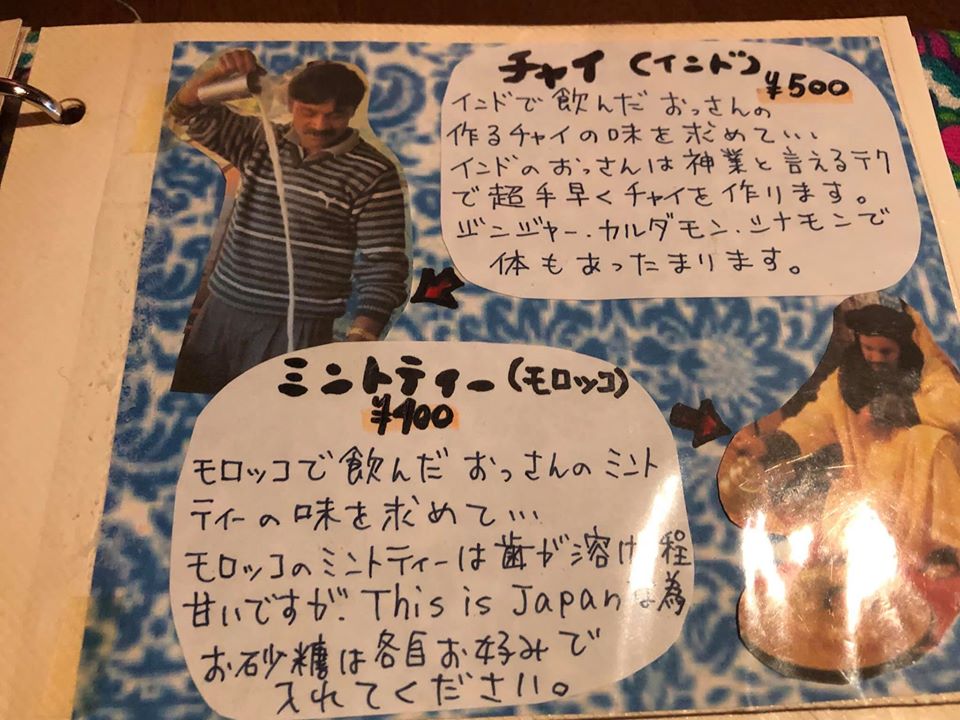 チャイ（インド）
¥500
インドで飲んだおっさんの
作るチャイの味を求めて...
インドのおっさんは神業と言えるテク
で超手早くチャイを作ります。
ジンジャー.カルダモン.シナモンで
体もあったまります。
ミントティー（モロッコ）
¥400
モロッコで飲んだおっさんのミント
ティーの味を求めて...
モロッコのミントティーは歯が溶ける程
甘いですが.This is Japanな為
お砂糖は各自お好みで
入れてください。